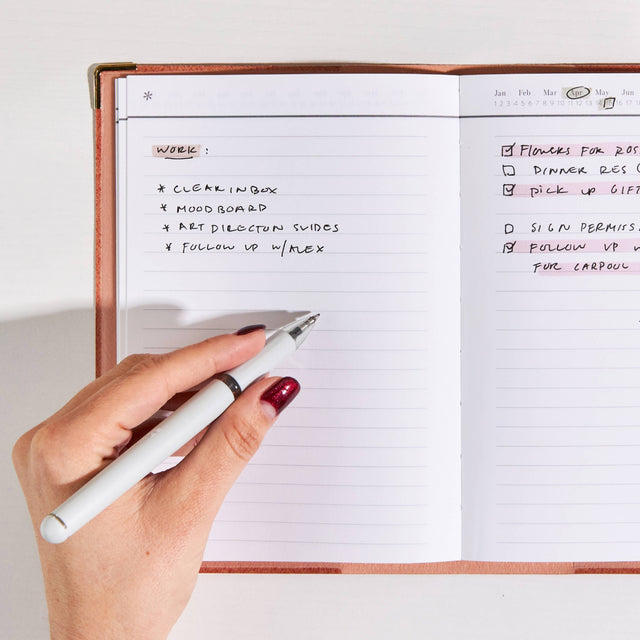 *
WORK :
* CLEAR INBOX
* MOODBOARD
* ART DIRECTION SLIDES
* FOLLOW UP W/ALEX
Jan Feb Mar Apr May Jun
1 2 3 4 5 6 7 8 9 10 11 12 13 14 15 16 17
FLOWERS FOR
DINNER RES
PICK UP
SIGN
FOLLOW UP
FOR CARPOOL